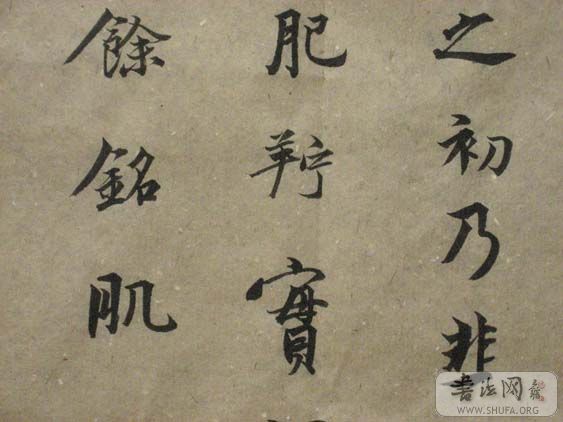 之初乃非
肥羜實
餘銘肌
書法网
WWW.SHUFA.ORG